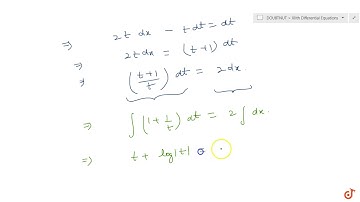 DOUBTNUT – With Differential Equations
⇒ 2t dx − t dt = dt
⇒ 2t dx = (t+1) dt
⇒ (t+1/t) dt = 2dx
⇒ ∫(1+1/t) dt = 2∫dx.
⇒ t + log|t|